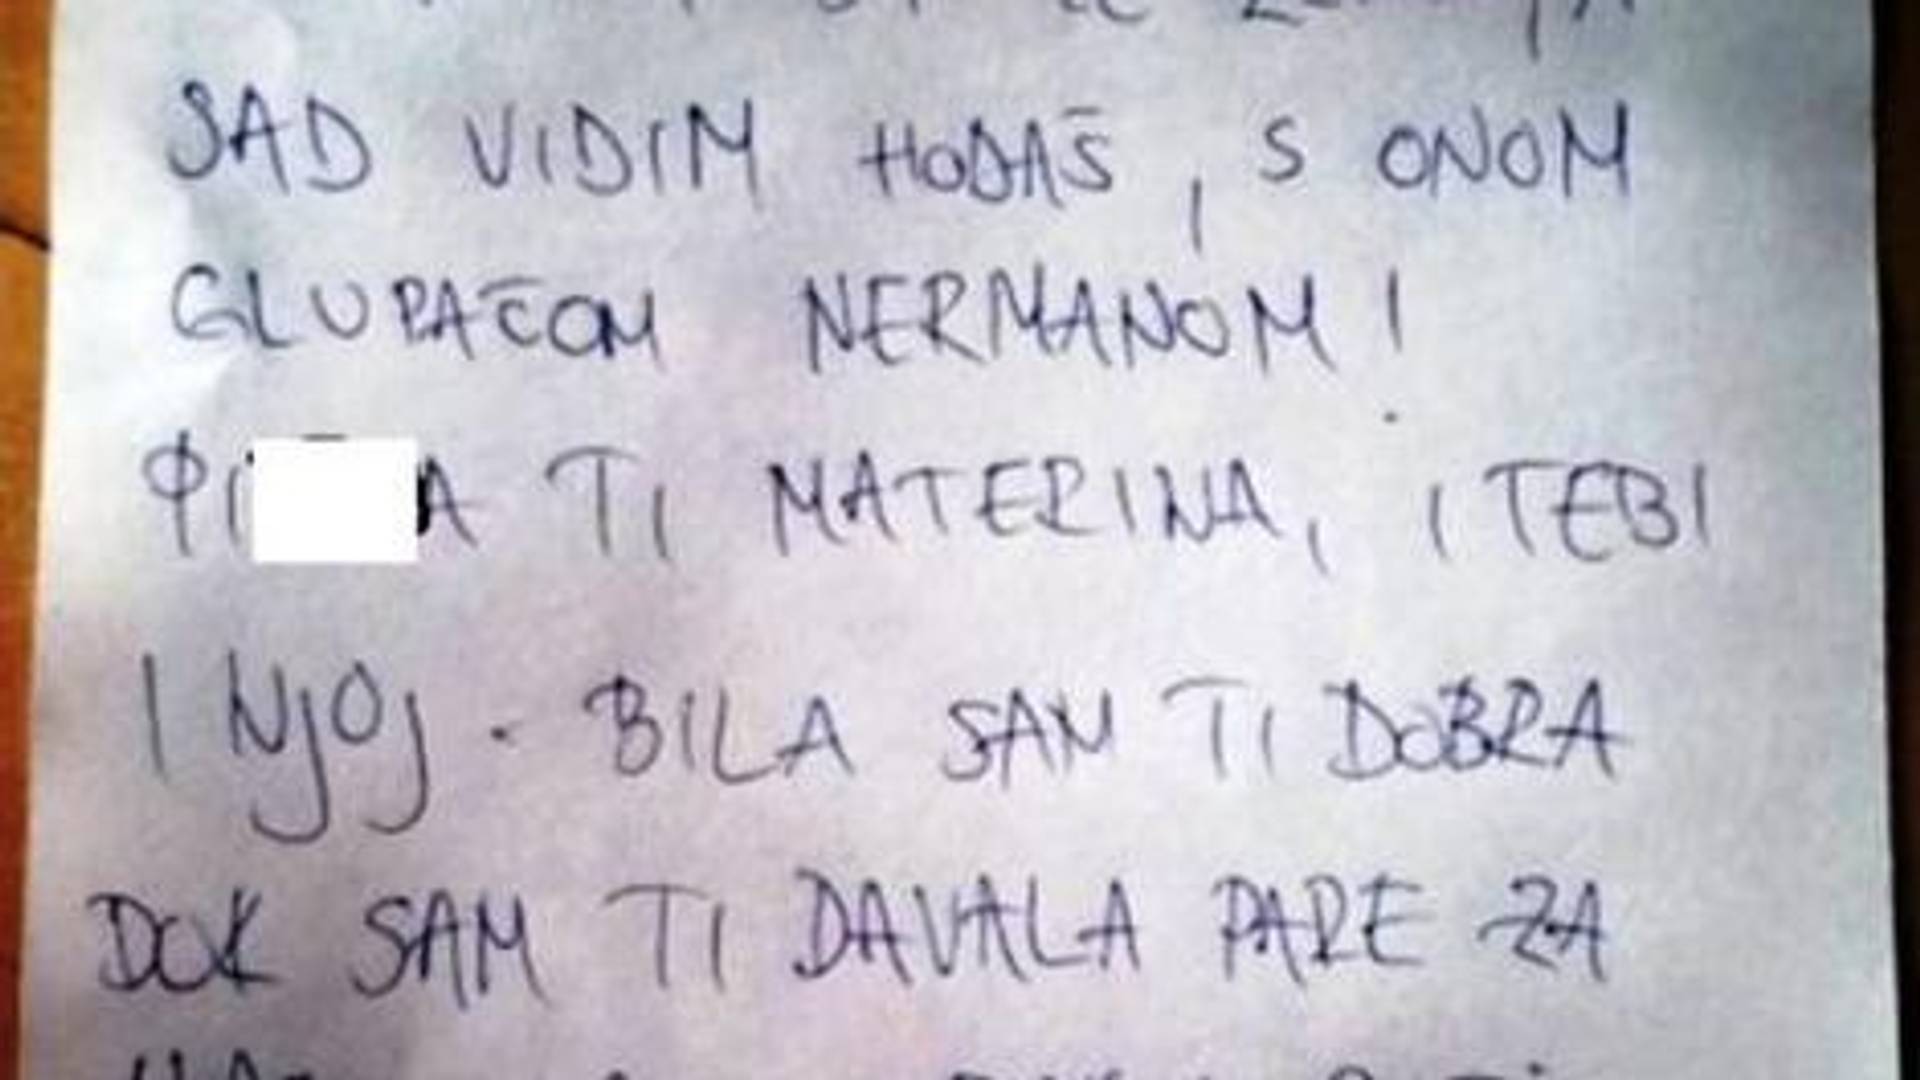 SAD VIDIM HODAŠ, S ONOM
GLUPAČOM NERMANOM!
TI MATERINA, I TEBI
I NJOJ. BILA SAM TI DOBRA
DOK SAM TI DAVALA PARE ZA